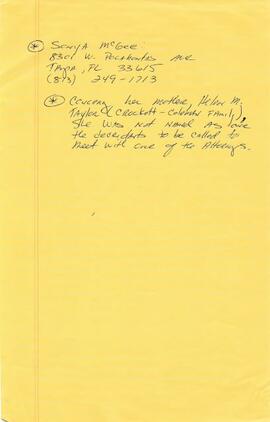 * Sonya McGee:
8301 W. Pocahontas Ave
Tampa, FL 33615
(813) 249-1713
* Concern her mother, Helen M.
Taylor (Crockett-Coleman Family)
She was not named as one
the decendants to be called to
meet with one of the Attorneys.